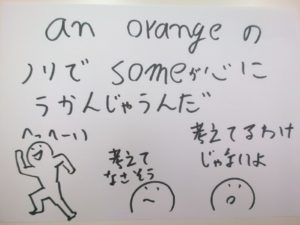 an orange の
ノリで someが心に
うかんじゃうんだ
へっへーい
考えて
なさそう
考えてるわけ
じゃないよ